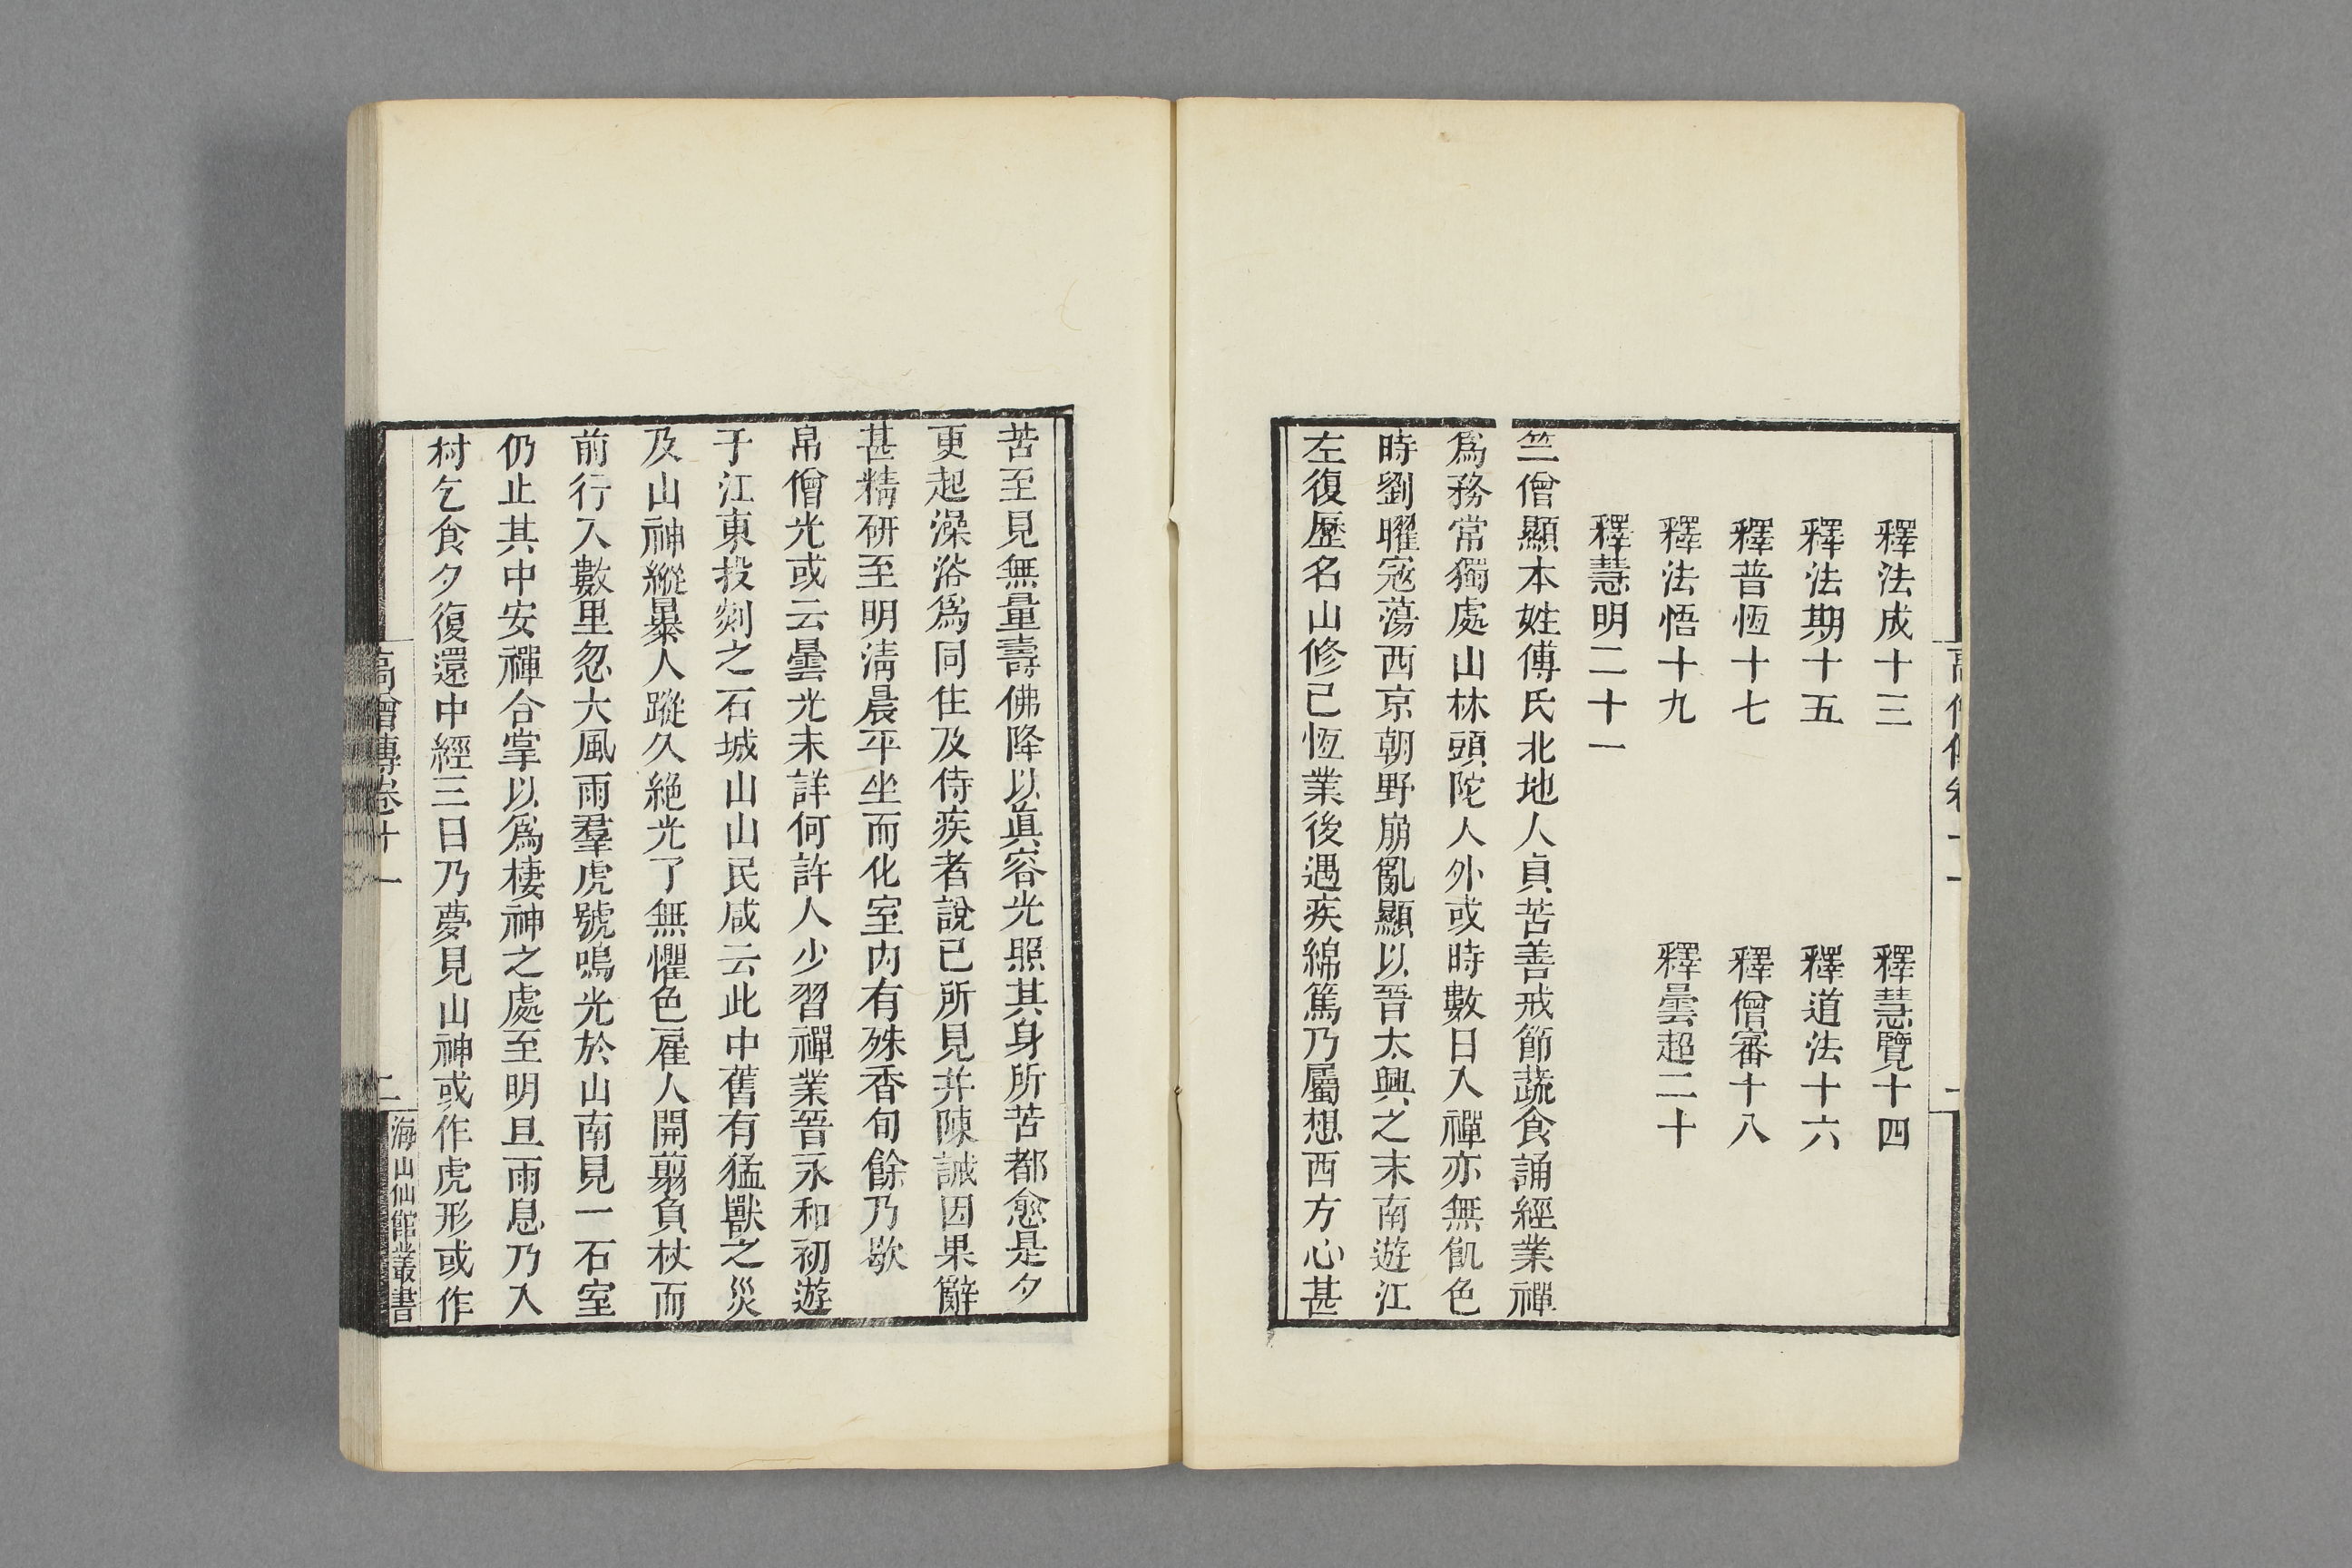 釋法成十三　釋慧覽十四
釋法期十五　釋道法十六
釋普恆十七　釋僧審十八
釋法悟十九　釋曇超二十
釋慧明二十一
竺僧顯本姓傅氏北地人貞苦善戒節蔬食誦經業禪
爲務常獨處山林頭陀人外或時數日入禪亦無飢色
時劉曜寇蕩西京朝野崩亂顯以晉太興之末南遊江
左復歷名山修已恆業後遇疾綿篤乃屬想西方心甚
苦至見無量壽佛降以眞容光照其身所苦都愈是夕
更起澡浴爲同住及侍疾者說已所見并陳誡因果辭
甚精研至明淸晨平坐而化室內有殊香旬餘乃歇
帛僧光或云曇光未詳何許人少習禪業晉永和初遊
于江東投剡之石城山山民咸云此中舊有猛獸之災
及山神縱暴人蹤久絕光了無懼色雇人開翦負杖而
前行入數里忽大風雨羣虎號鳴光於山南見一石室
仍止其中安禪合掌以爲棲神之處至明旦雨息乃入
村乞食夕復還中經三日乃夢見山神或作虎形或作
高僧傳卷十一
二
海山仙館叢書